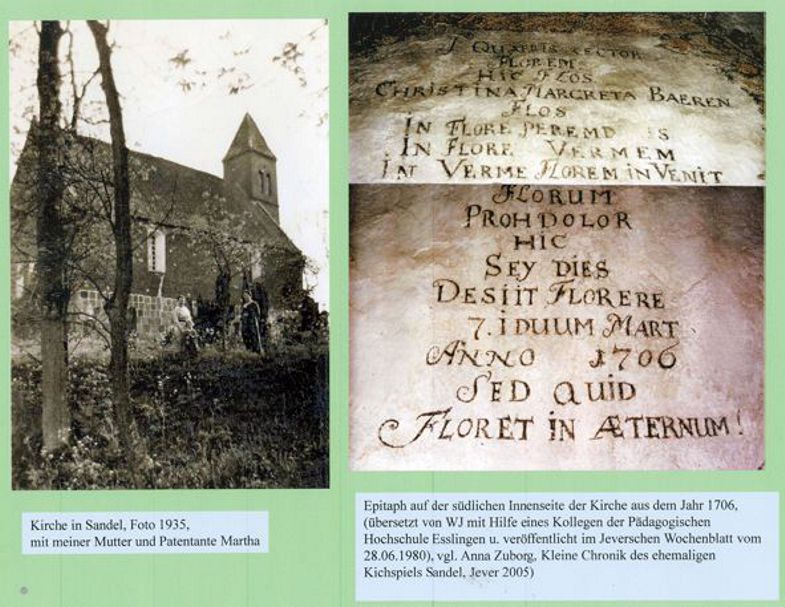 Kirche in Sandel, Foto 1935,
mit meiner Mutter und Patentante Martha
QUÆRIS LECTOR
FLOREM
HIC FLOS
CHRISTINA MARGRETA BAEREN
FLOS
IN FLORE PEREMD IS
IN FLORE VERMEM
AT VERME FLOREM INVENIT
FLORUM
PROH DOLOR
HIC
SEY DIES
DESIIT FLORERE
7. IDUUM MART
ANNO 1706
SED QUID
FLORET IN ÆTERNUM!
Epitaph auf der südlichen Innenseite der Kirche aus dem Jahr 1706,
(übersetzt von WJ mit Hilfe eines Kollegen der Pädagogischen
Hochschule Esslingen u. veröffentlicht im Jeverschen Wochenblatt vom
28.06.1980), vgl. Anna Zuborg, Kleine Chronik des ehemaligen
Kichspiels Sandel, Jever 2005)